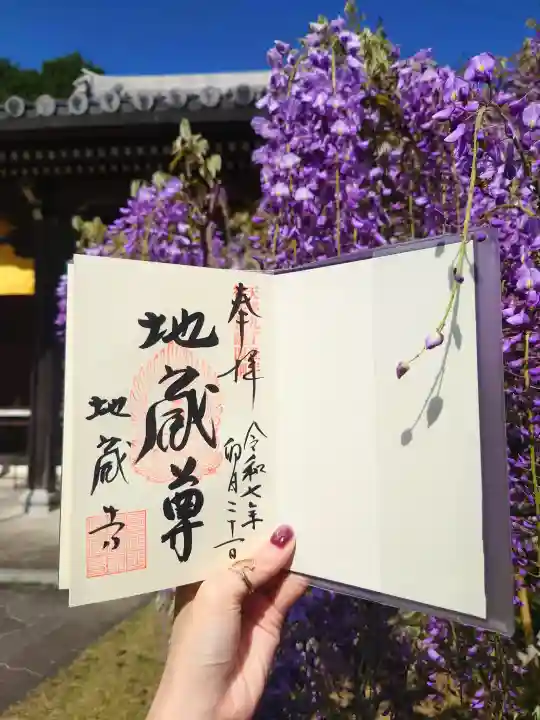 奉拝
令和七年
卯月二十一日
地蔵尊
地蔵寺